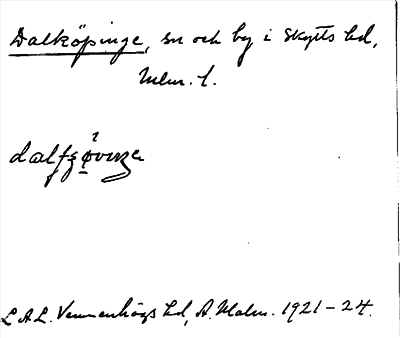 Dalköpinge, sn och by i Skytts hd,
Mlm. l.
L A L. Vemmenhögs hd, A. Malm. 1921-24.